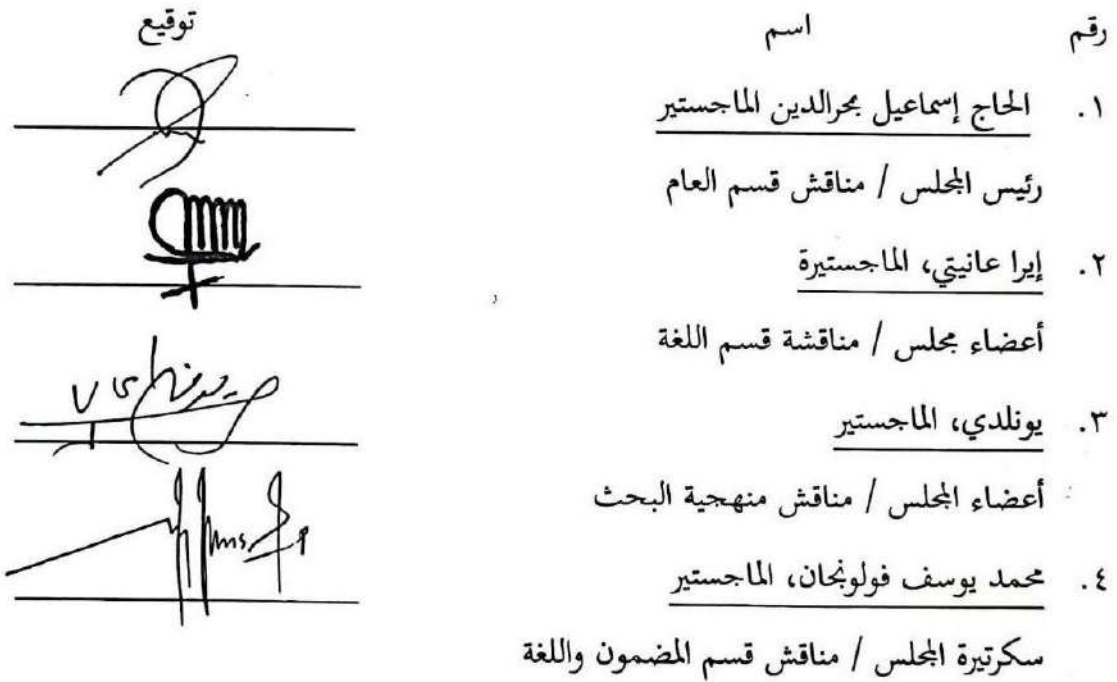 رقم اسم توقيع
١. الحاج إسماعيل بحرالدين الماجستير
رئيس المجلس / مناقش قسم العام
٢. إيرا عانيتي، الماجستيرة
أعضاء مجلس / مناقشة قسم اللغة
٣. يونلدي، الماجستير
أعضاء المجلس / مناقش منهجية البحث
٤. محمد يوسف فولونجان، الماجستير
سكرتيرة المجلس / مناقش قسم المضمون واللغة